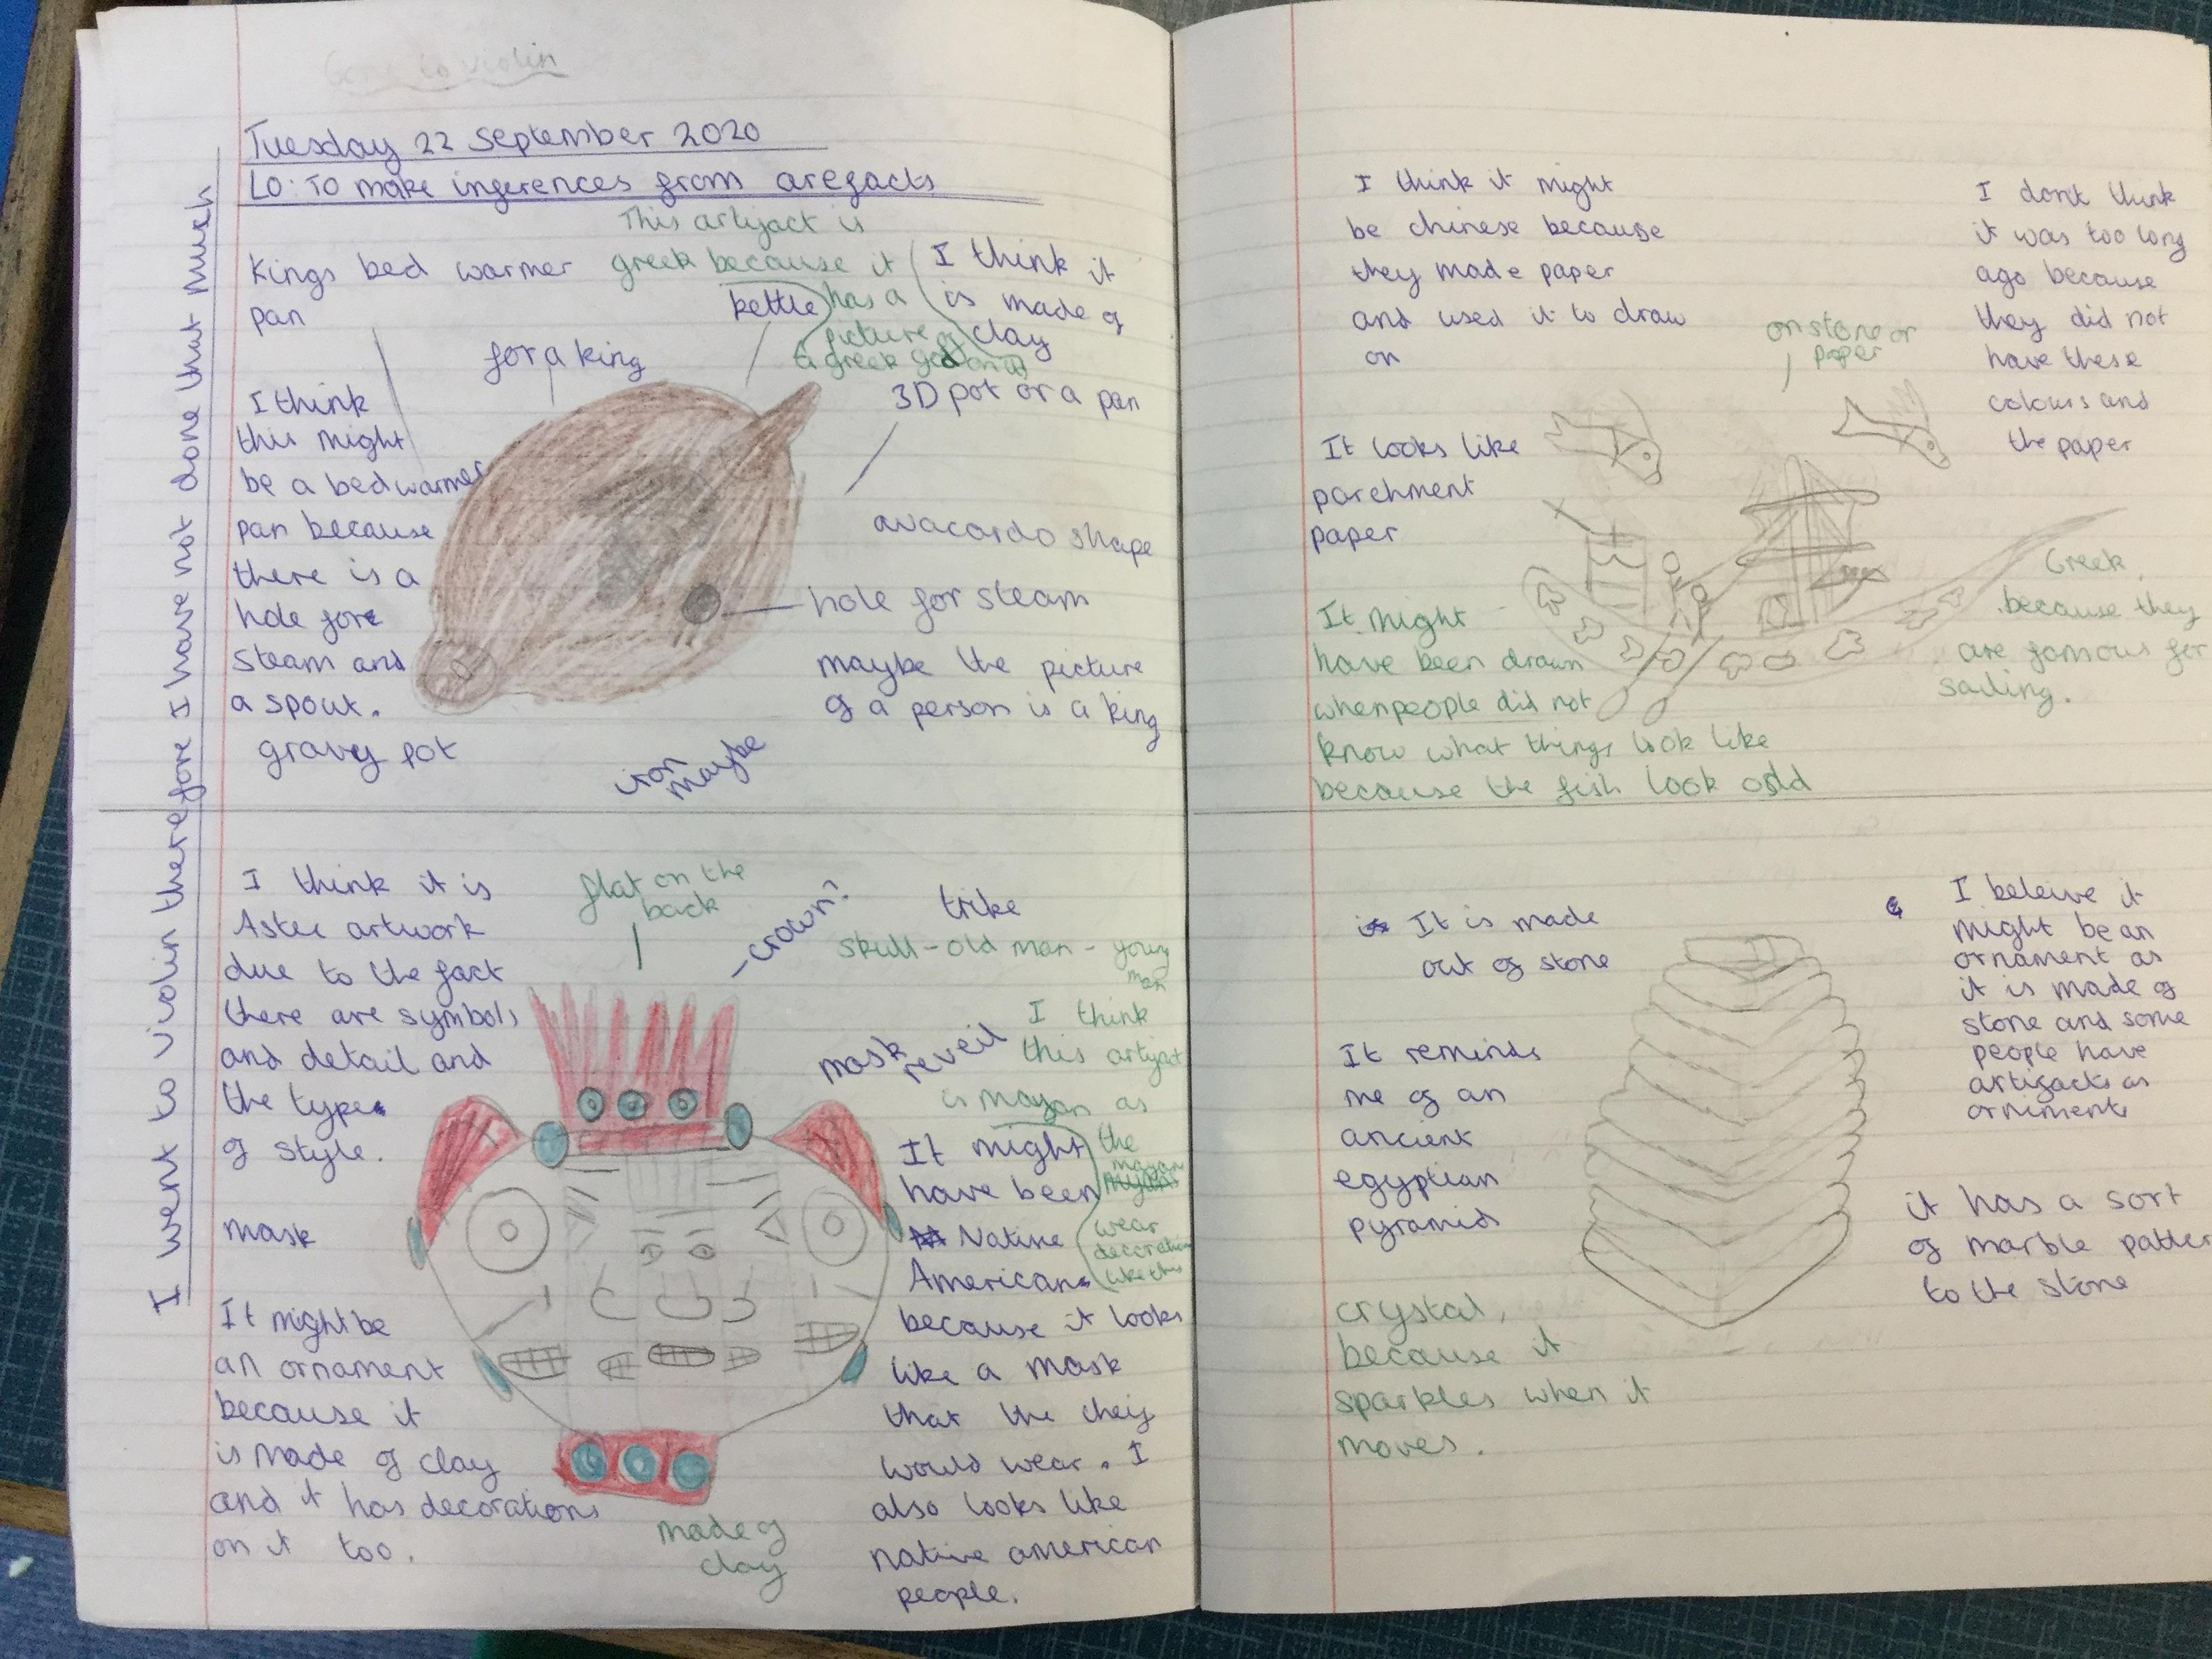 Gone to violin
Tuesday 22 September 2020
LO: To make inferences from arefacts
I went to violin therefore I have not done that much
Kings bed warmer
pan
for a king
kettle
This artifact is
greek because it
has a
picture of
a greek god on it
I think it
is made of
clay
3D pot or a pan
I think
this might
be a bed warmer
pan because
there is a
hole fore
steam and
a spout.
gravy pot
avacardo shape
hole for steam
maybe the picture
of a person is a king
iron
maybe
I think it is
Aztec artwork
due to the fact
there are symbols
and detail and
the type
of style.
mask
It might be
an ornament
because it
is made of clay
and it has decorations
on it too.
flat on the
back
-crown?
trike
skull - old man - young
man
mask
reveil
I think
this artifact
is mayan as
the
mayan
wear
decoration
like this
It might
have been
Native
American
because it looks
like a mask
that the cheif
would wear. I
also looks like
native american
people.
made of
clay
I think it might
be chinese because
they made paper
and used it to draw
on
on stone or
paper
I dont think
it was too long
ago because
they did not
have these
colours and
the paper
It looks like
parchment
paper
It might
have been drawn
when people did not
know what things look like
because the fish look odd
Greek
because they
are famous for
sailing.
It is made
out of stone
It reminds
me of an
ancient
egyptian
pyramid
crystal,
because it
sparkles when it
moves.
I beleive it
might be an
ornament as
it is made of
stone and some
people have
artifacts as
orniments
it has a sort
of marble patter
to the stone